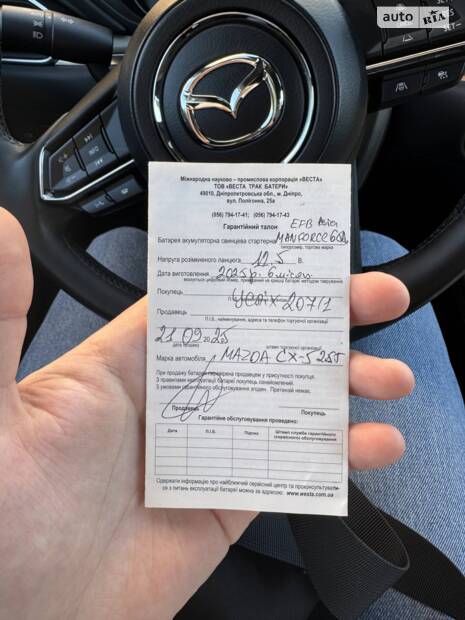 auto RIA
SET-
Міжнародна науково – промислова корпорація «ВЕСТА»
ТОВ «ВЕСТА ТРАК БАТЕРИ»
49010, Дніпропетровська обл., м. Дніпро,
вул. Полігонна, 25а
(056) 794-17-41; (056) 794-17-43
EFB Asia
Гарантійний талон
Батарея акумуляторна свинцева стартерна MANFORCE
типорозмір, торгова марка
Напруга розімкненого ланцюга 12,5 В.
Дата виготовлення 2025р. 6 місяць
Покупець
207/1
Продавець
П.І.Б., найменування, адреса та телефон торгуючої організації
21 09 2025
дата продажу
штамп торгуючої організації
Марка автомобіля MAZDA CX-5 255
При продажу батарея перевірена продавцем у присутності покупця.
З правилами експлуатації батареї покупець ознайомлений.
З умовами гарантійного обслуговування згоден. Претензій немає.
Продавець
Покупець
Гарантійне обслуговування проведено:
Дата П.І.Б. Підпис Штамп служби гарантійного (сервісного) обслуговування
Одержати інформацію про найближчий сервісний центр та проконсультувати-
ся з питань експлуатації батареї можна за адресою: www.westa.com.ua